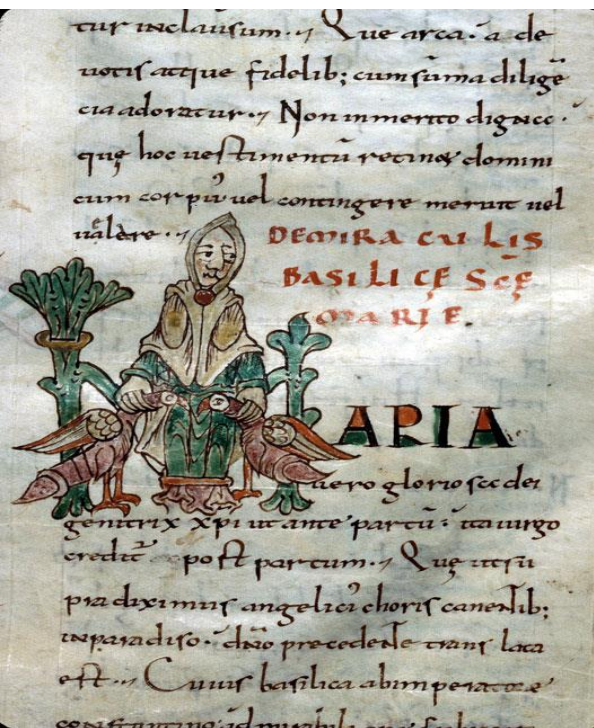 tur inclausum. Que arca a de
uotis atque fidelib; cum sūma dilige
cia adoratur. Non inmerito digna
quę hoc uestimentū retinet domini
cum corpus uel contingere meruit uel
ualere.
DE MIRACULIS
BASILICĘ SCĘ
MARIĘ.
ARIA
uero gloriosa dei
genitrix xpi ut ante partū ita uirgo
credit post partum. Quę ut sū
pra diximus angelicis choris canentib;
in paradiso dño precedente trans lata
est. Cuius basilica ab imperatore